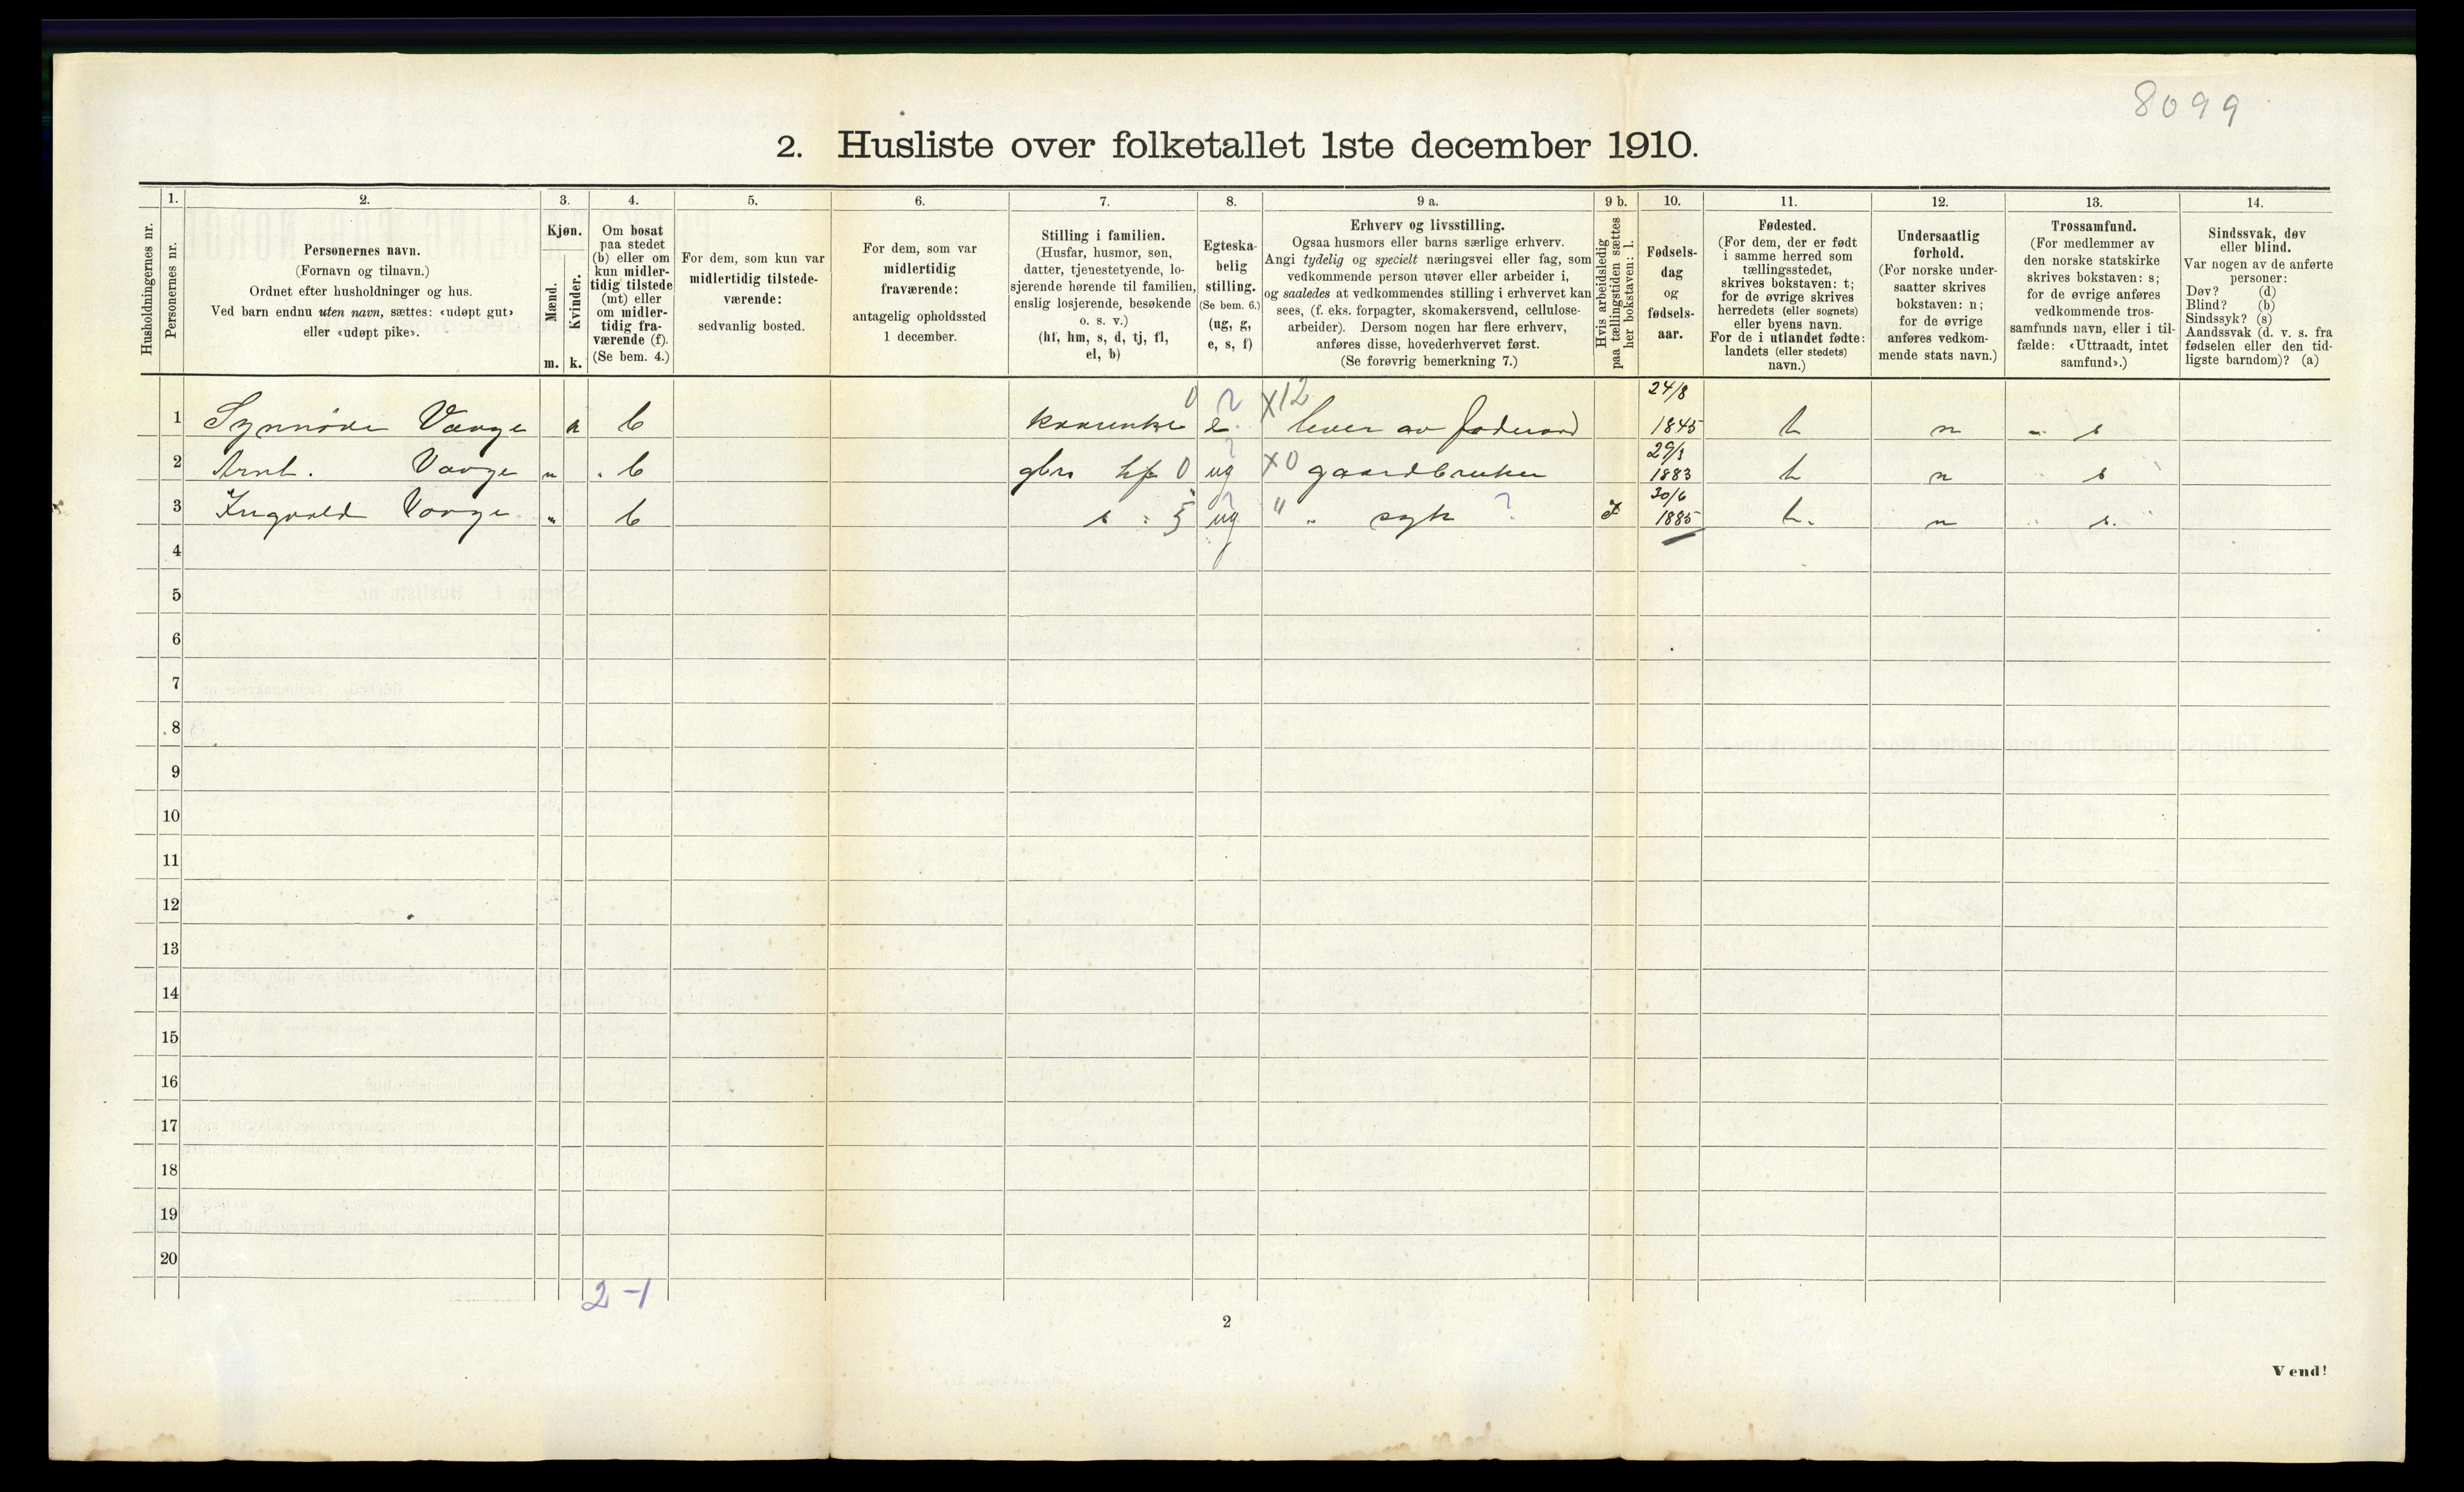 8099
2. Husliste over folketallet 1ste december 1910.
Husholdningernes nr.
1.
Personernes nr.
2.
Personernes navn.
(Fornavn og tilnavn.)
Ordnet efter husholdninger og hus.
Ved barn endnu uten navn, sættes: «udøpt gut»
eller «udøpt pike».
3.
Kjøn.
Mænd.
Kvinder.
m. k.
4.
Om bosat
paa stedet
(b) eller om
kun midler-
tidig tilstede
(mt) eller
om midler-
tidig fra-
værende (f).
(Se bem. 4.)
5.
For dem, som kun var
midlertidig tilstede-
værende:
sedvanlig bosted.
6.
For dem, som var
midlertidig
fraværende:
antagelig opholdssted
1 december.
7.
Stilling i familien.
(Husfar, husmor, søn,
datter, tjenestetyende, lo-
sjerende hørende til familien,
enslig losjerende, besøkende
o. s. v.)
(hf, hm, s, d, tj, fl,
el, b)
8.
Egteska-
belig
stilling.
(Se bem. 6.)
(ug, g,
e, s, f)
9 a.
Erhverv og livsstilling.
Ogsaa husmors eller barns særlige erhverv.
Angi tydelig og specielt næringsvei eller fag, som
vedkommende person utøver eller arbeider i,
og saaledes at vedkommendes stilling i erhvervet kan
sees, (f. eks. forpagter, skomakersvend, cellulose-
arbeider). Dersom nogen har flere erhverv,
anføres disse, hovederhvervet først.
(Se forøvrig bemerkning 7.)
9 b.
Hvis arbeidsledig
paa tællingstiden sættes
her bokstaven: l.
10.
Fødsels-
dag
og
fødsels-
aar.
11.
Fødested.
(For dem, der er født
i samme herred som
tællingsstedet,
skrives bokstaven: t;
for de øvrige skrives
herredets (eller sognets)
eller byens navn.
For de i utlandet fødte:
landets (eller stedets)
navn.)
12.
Undersaatlig
forhold.
(For norske under-
saatter skrives
bokstaven: n;
for de øvrige
anføres vedkom-
mende stats navn.)
13.
Trossamfund.
(For medlemmer av
den norske statskirke
skrives bokstaven: s;
for de øvrige anføres
vedkommende tros-
samfunds navn, eller i til-
fælde: «Uttraadt, intet
samfund».)
14.
Sindssvak, døv
eller blind.
Var nogen av de anførte
personer:
Døv? (d)
Blind? (b)
Sindssyk? (s)
Aandssvak (d. v. s. fra
fødselen eller den tid-
ligste barndom)? (a)
0 ? X12 24/8
1 Synnøve Vange k b kaarenke e. lever av føderaad 1845 t n - s
? 29/1
2 Arnt. Vange m b gbr hf 0 ug X0 gaardbruker 1883 t n s
? 30/6
3 Ingvald Vange " b s 5 ug " " syk ? 1885 t. n s.
4
5
6
7
8
9
10
11
12
13
14
15
16
17
18
19
20
2-1
2
Vend!